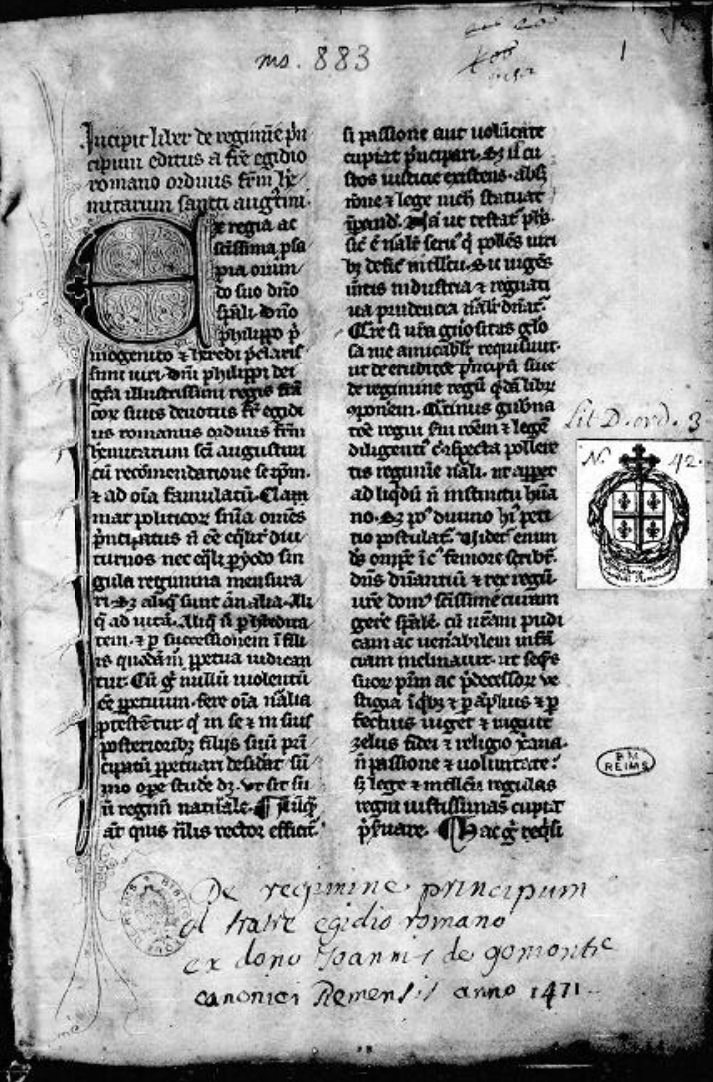 ms. 883
1
Incipit liber de regimīe prī
cipum editus a frē egidio
romano ordinis frm he
mitarum sancti augustini.
Ex regia ac
scīssima psa
pia oriun
do suo dno
spāli. dno
philippo p
mogenito ⁊ heredi p̄claris
simi viri. dm̄ philippi dei
gra illustrissimi regis frā
cor suus deuotus fr̄ egidi
us romanus ordinis frm̄
hemitarum scī augustini
cū recōmendatione se ip̄m.
⁊ ad oīa famulatū. Clam
mat politicor snīa omēs
p̄ncipatus n̄ eē eqlīt diu
turnos nec eqlī pyodo sin
gula regimina mensura
ri. Sꝫ aliq̄ sunt ānalia. Ali
q̄ ad uitā. Aliq̄
tem. ⁊ p successionem ī fili
is quodāmō ppetua iudican
tur. Cū g̊ nullū uiolentū
eē ppetuum. fere oīa nālia
ptestētur q in se ⁊ in suis
posterioribꝫ filijs suū prī
cipatū ppetuari desidat sū
mo ope stude dꝫ. ut sit su
ū regnū naturale.
at quis nlīs rector efficit̄
si passione aut uolūtate
cupiat p̄ncipari. Sꝫ si cu
stos iusticie existens. absꝫ
rōne ⁊ lege nich statuat
īpand. Nā ut testat phs.
sic ē nālr seru q pollēs uiri
bꝫ defic intllcu. Sic uigēs
mtis industria ⁊ regitatī
ua prudencia nālr dnat̄.
Qre si urā gnositas glo
sa me amicablr requisiuit.
ut de eruditōe p̄ncipū siue
de regimine regū q dā libr
ꝯponem. Qtinus gubna
tōe regni scm rōem ⁊ legē
diligenti
tis regimīe nāli. ut apper
ad liqdū n̄ instinctu hūa
no. Sꝫ po diuino hi peti
tio postulat. Videt enim
ds omīpo ī femore scribt
dn̄s dnantiū ⁊ rex regū.
ure dom scissime curam
gere spālē. cū urām pudi
cam ac uenabilem infā
ciam inclinauit. ut seqs
suor prm ac p̄decessor ue
stigia ī qbꝫ ⁊ p amplius ⁊ p
fectius uiget ⁊ uiguit
zelus fidei ⁊ religio xana.
n̄ passione ⁊ uoluntate:
sꝫ lege ⁊ intllcu regulas
regni iustissimas cupiat
p̄suare. ¶ Hac g̊ reqsi
Lit D. ord. 3
N. 42.
BM
REIMS
De regimine principum
a fratre egidio romano
ex dono Joannis de gomontie
canonici Remensis anno 1471.